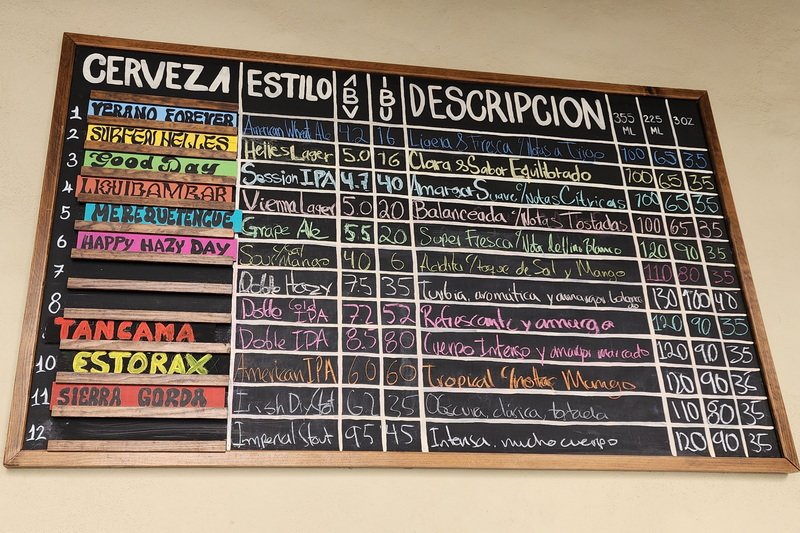 CERVEZA ESTILO ABV IBU DESCRIPCION 355 ML 225 ML 3 OZ
1 VERANO FOREVER American Wheat Ale 4.2 16 Ligera & Fresca c/Notas a Trigo 100 65 35
2 SURFEN HELLES Helles Lager 5.0 16 Clara & Sabor Equilibrado 100 65 35
3 Good Day Session IPA 4.7 40 Amargor Suave c/Notas Cítricas 100 65 35
4 LIQUIDAMBAR Vienna Lager 5.0 20 Balanceada c/Notas Tostadas 100 65 35
5 MEREQUETENGUE Grape Ale 5.5 20 Super Fresca c/Nota de Vino Blanco 120 90 35
6 HAPPY HAZY DAY Sour/Sal Mango 4.0 6 Acidita c/toque de Sal y Mango 110 80 35
7 Doble Hazy 7.5 35 Turbia, aromática y amargor 130 100 40
8 Doble Cold IPA 7.2 52 Refrescante y amarga 120 90 35
TANGAMA Doble IPA 8.5 80 Cuerpo Intenso y amargor marcado 120 90 35
10 ESTORAX American IPA 6.0 60 Tropical c/notas Mango 120 90 35
11 SIERRA GORDA Irish Dry Stout 6.7 35 Obscura, clásica, tostada 110 80 35
12 Imperial Stout 9.5 45 Intensa, mucho cuerpo 120 90 35